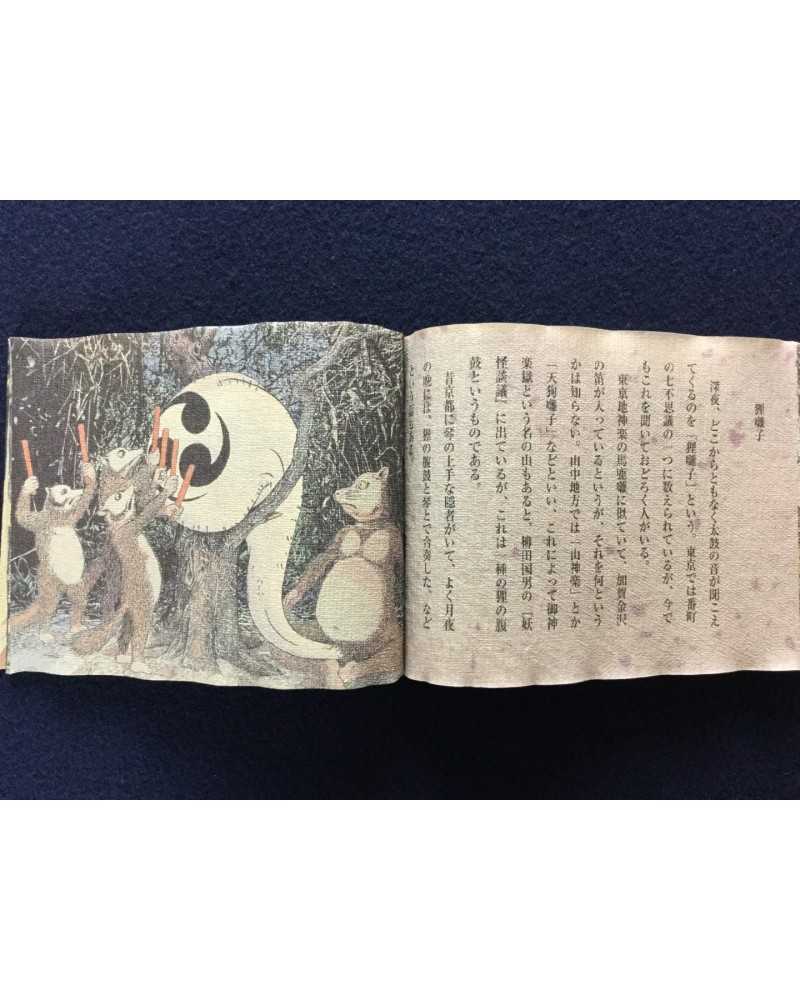 狸囃子
深夜、どこからともなく太鼓の音が聞こえ
てくるのを「狸囃子」という。東京では番町
の七不思議の一つに数えられているが、今で
もこれを聞いておどろく人がいる。
東京地神楽の馬鹿囃に似ていて、加賀金沢
の笛が入っているというが、それを何という
かは知らない。山中地方では「山神楽」とか
「天狗囃子」などといい、これによって御神
楽嶽という名の山もあると、柳田国男の『妖
怪談議』に出ているが、これは一種の狸の腹
鼓というものである。
昔京都に琴の上手な隠者がいて、よく月夜
の晩には、狸の腹鼓と琴とで合奏した、など